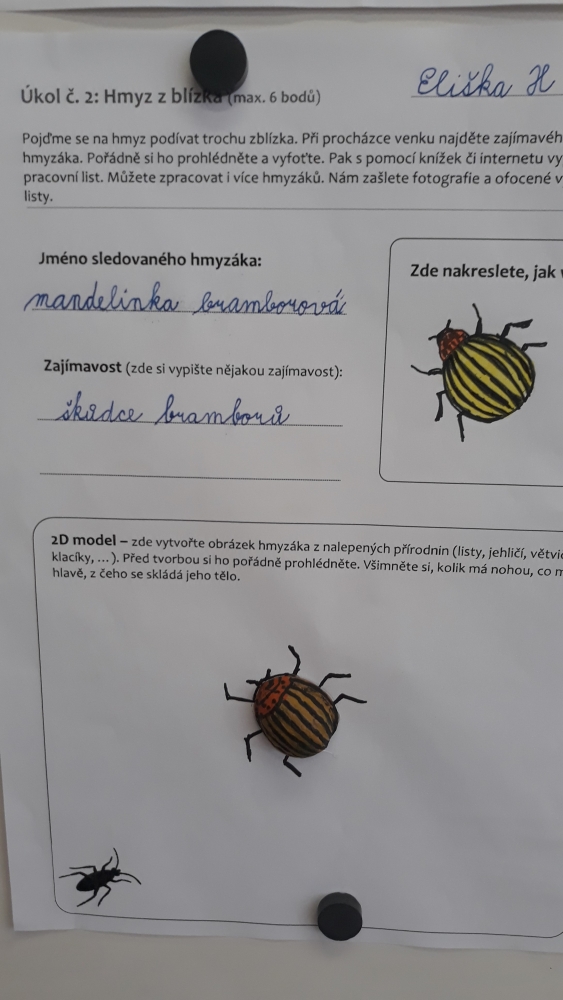 Eliška H
Úkol č. 2: Hmyz z blízka (max. 6 bodů)
Pojďme se na hmyz podívat trochu zblízka. Při procházce venku najděte zajímavéh
hmyzáka. Pořádně si ho prohlédněte a vyfoťte. Pak s pomocí knížek či internetu vy
pracovní list. Můžete zpracovat i více hmyzáků. Nám zašlete fotografie a ofocené v
listy.
Jméno sledovaného hmyzáka:
mandelinka bramborová
Zajímavost (zde si vypište nějakou zajímavost):
škůdce bramborů
Zde nakreslete, jak v
2D model – zde vytvořte obrázek hmyzáka z nalepených přírodnin (listy, jehličí, větvič
klacíky, ...). Před tvorbou si ho pořádně prohlédněte. Všimněte si, kolik má nohou, co m
hlavě, z čeho se skládá jeho tělo.